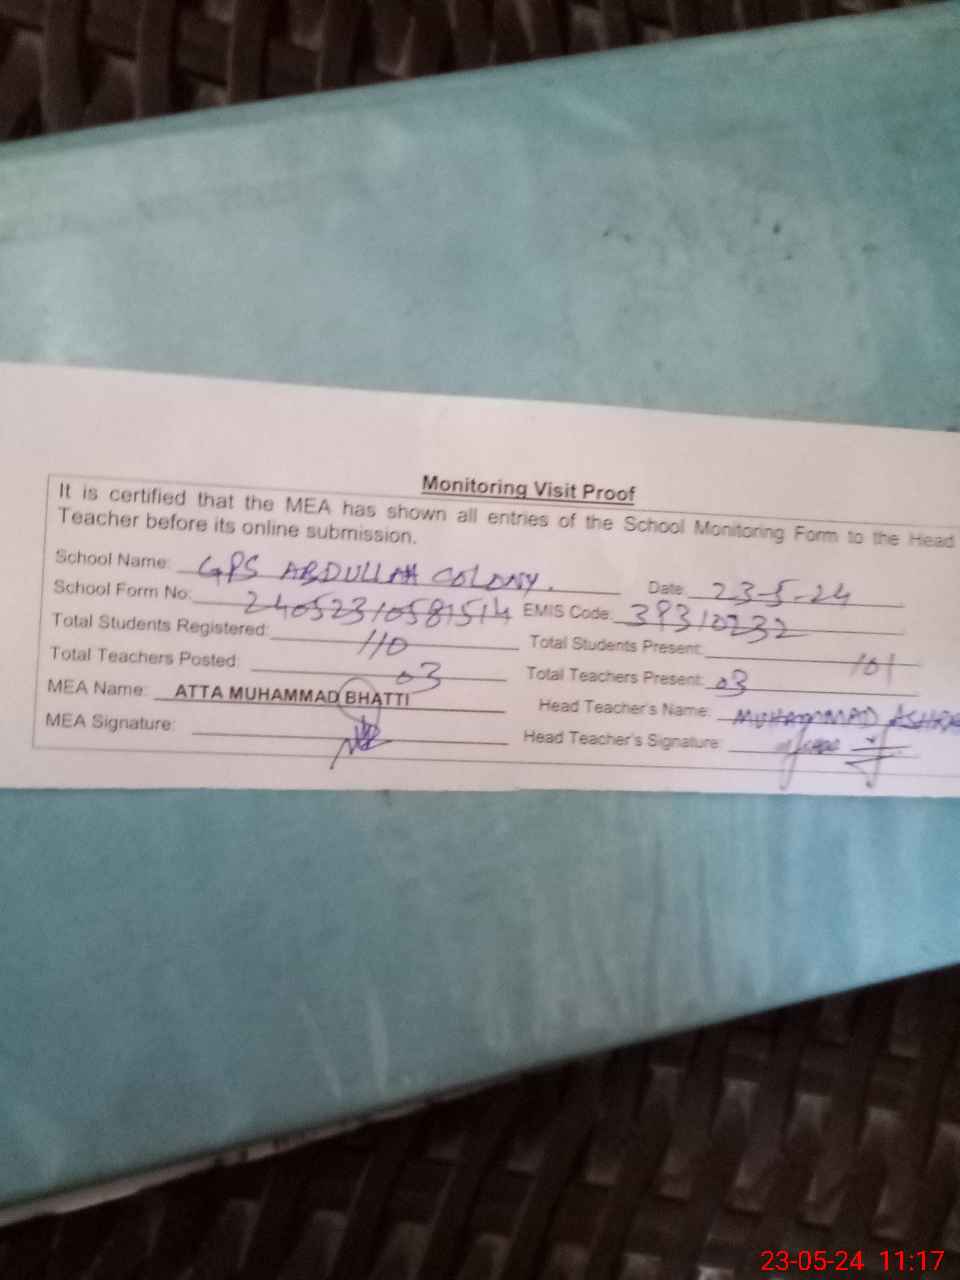 Monitoring Visit Proof
It is certified that the MEA has shown all entries of the School Monitoring Form to the Head
Teacher before its online submission.
School Name: GPS ABDULLAH COLONY. Date: 23-5-24
School Form No: 24052310581514 EMIS Code: 39310232
Total Students Registered: 110 Total Students Present: 101
Total Teachers Posted: 03 Total Teachers Present: 03
MEA Name: ATTA MUHAMMAD BHATTI Head Teacher's Name: MUHAMMAD ASHRA
MEA Signature: Head Teacher's Signature:
23-05-24 11:17